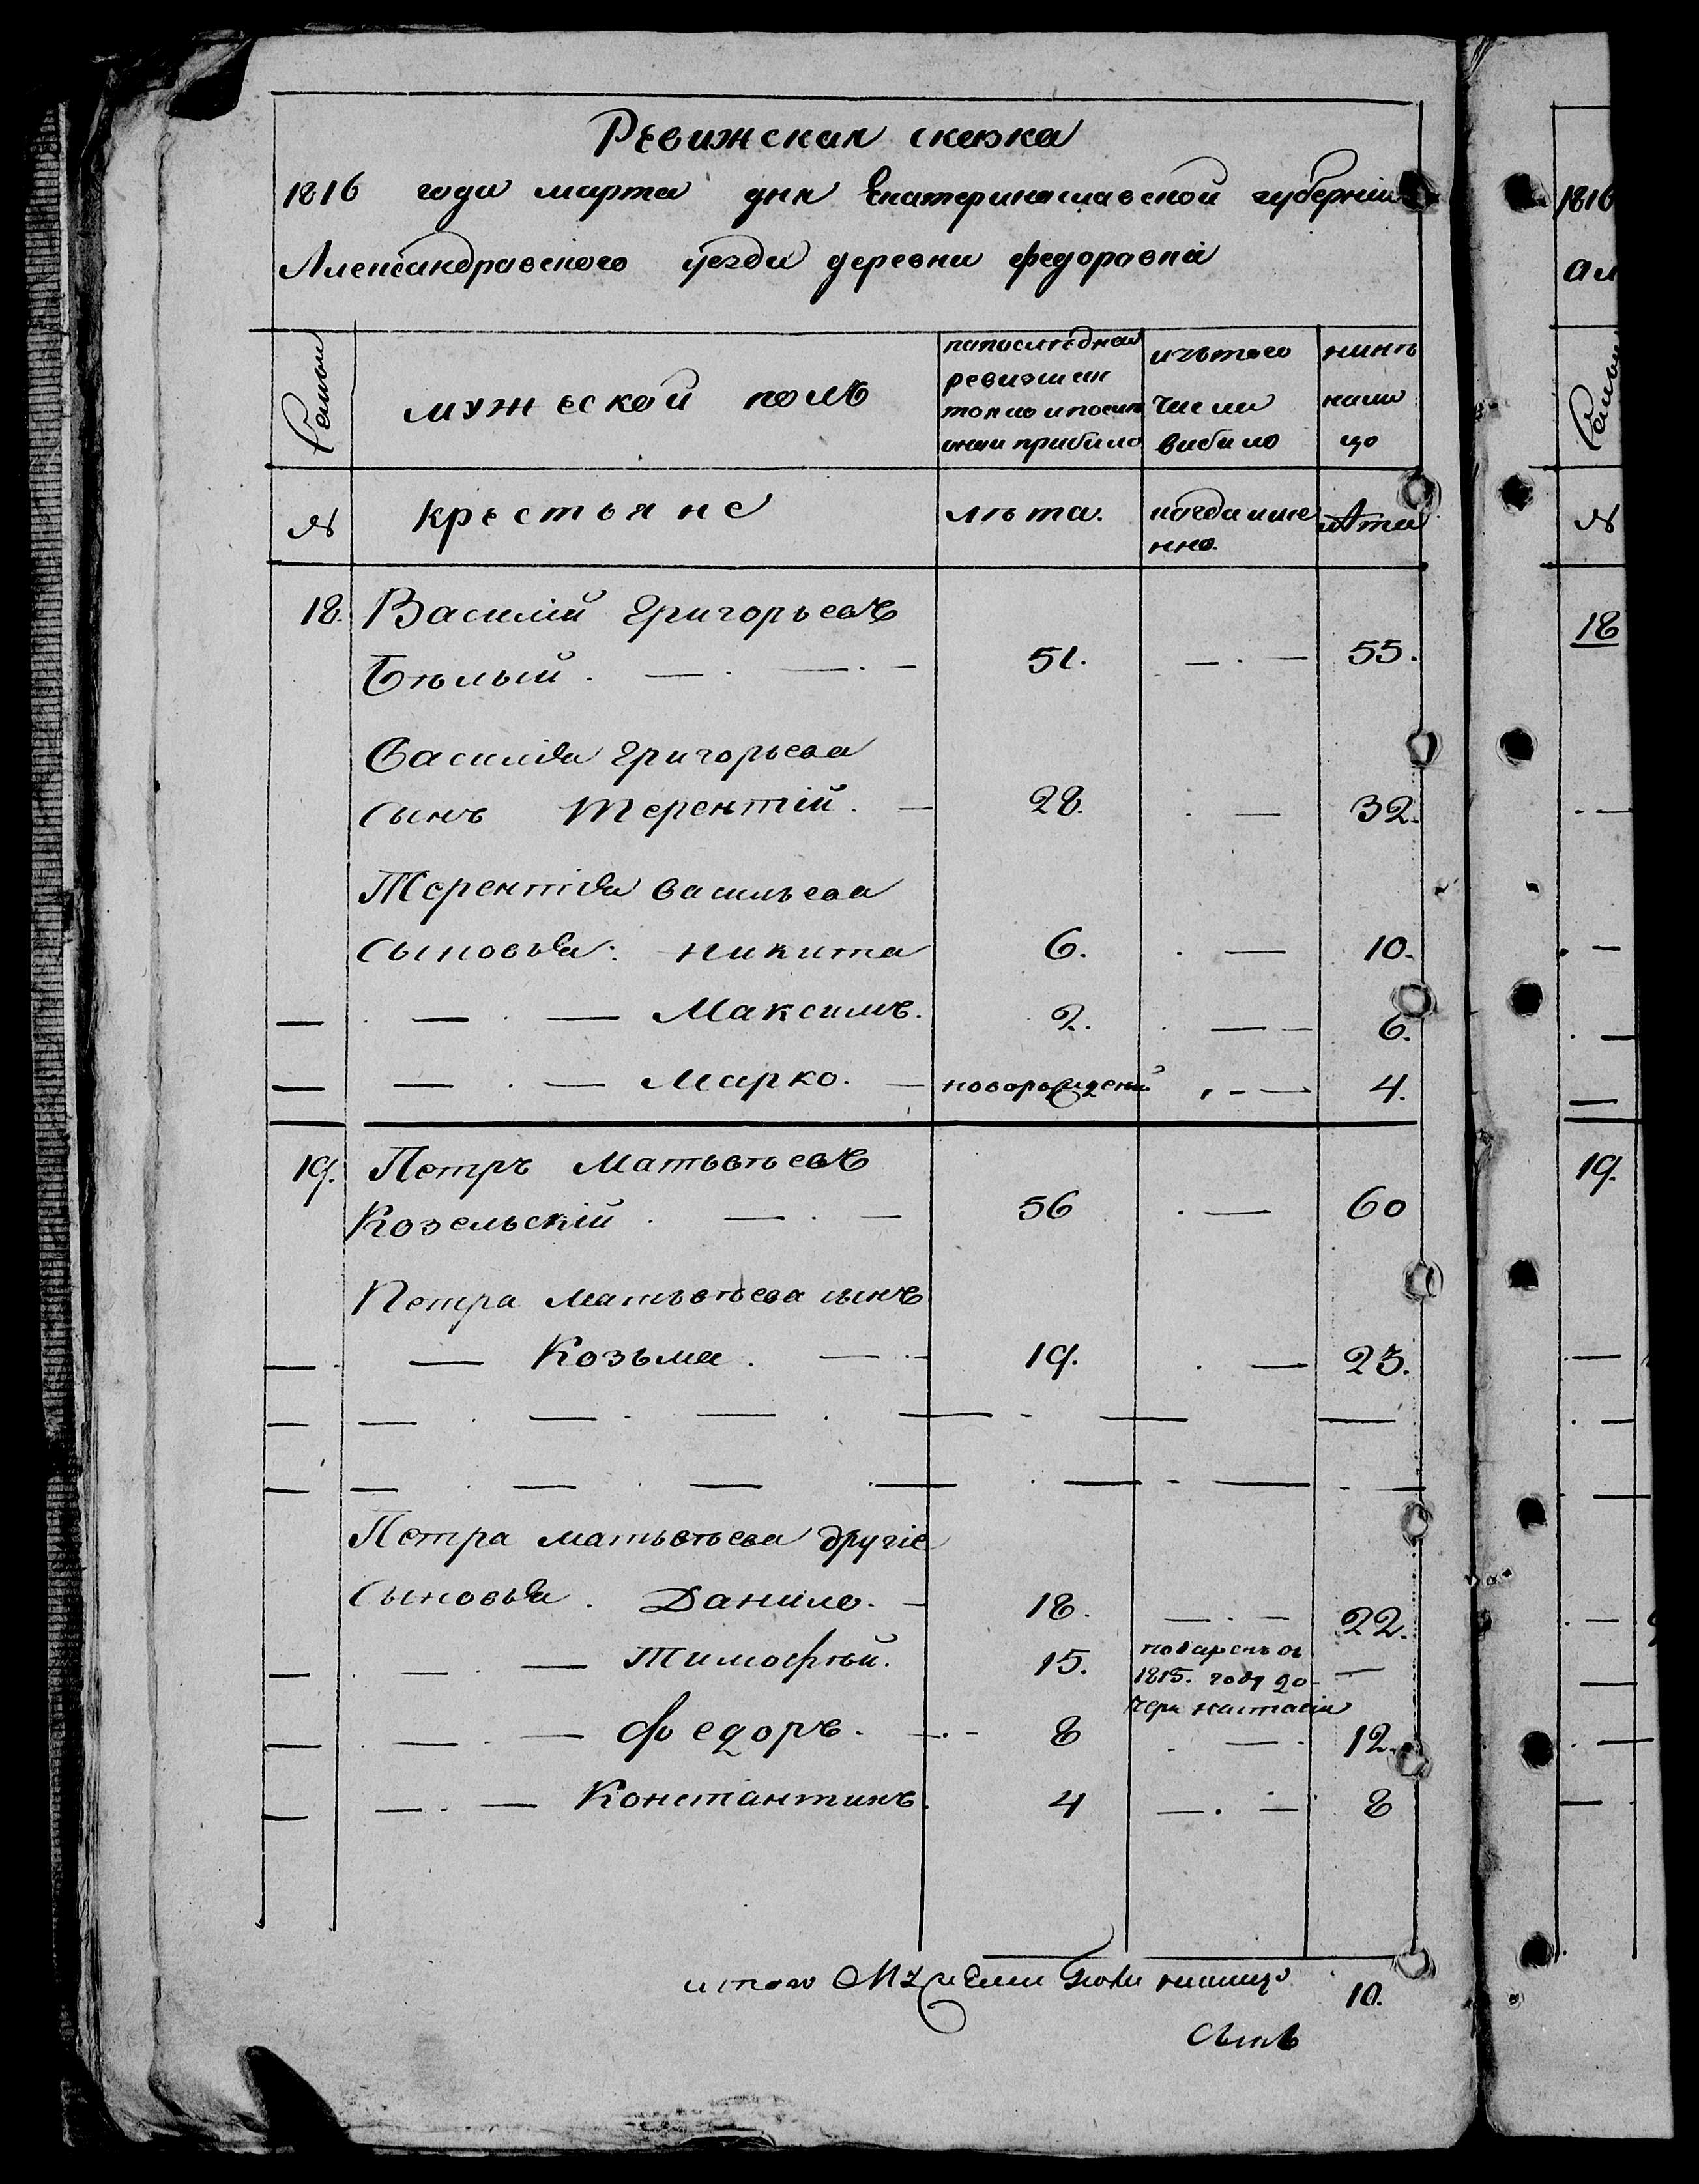 Ревижская сказка
1816 года марта дня Екатеринославской губерніи
Александравского уезда деревни федоравки
Семьи
мужеской полъ
папоследнай
ревизіи
только и посли
оной прибило
изътого
числа
вибило
нинѣ
нали
цо
№
крестьяне
лѣта.
когда име
нно.
лѣта
18. Василій Григорьевъ
Бѣлый. — . — . — 51. — . — 55.
Василія Григорьева
сынъ Терентій. — 28. . — 32.
Терентія Васильева
сыновья: никита 6. . — 10.
— . — . — Максимъ. 2. . — — 6.
— — . — Марко. — новорожденый . - — 4.
19. Петръ Матвѣевъ
Козельскій . — . — 56 . — 60
Петра Матьвѣева сынъ
— . — Козьма . — . — 19. . — 23.
— — . — . — . — - — —
— — . — . — . — . — - — . —
Петра матьвѣева другіе
сыновья . Данило. — 18. — . — 22.
— . — . — Тимофѣй. 15. подаренъ въ
1815. году до —
чери настасіи
— . — . — федоръ. — . - 8 . — . 12.
— — . — Константинъ. 4 — . — 8
итого налицо 10.
18
1816
19.